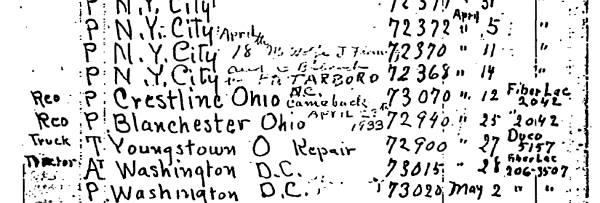 P N.Y. City 7237 " 31
P N.Y. City April 72372 April 5 "
P N.Y. City 18 72370 " 11 "
P N.Y. City TARBORO 72368 " 14 "
Reo P Crestline Ohio N.C. came back 73070 " 12 Fiber Lac 2042
Reo P Blanchester Ohio APRIL 1933 72940 " 25 " 2042
Truck T Youngstown O Repair 72900 " 27 Duco 5157
Tractor AT Washington D.C. 73015 " 28 Fiber Lac 206-3507
P Washington D.C. 73020 May 2 " "